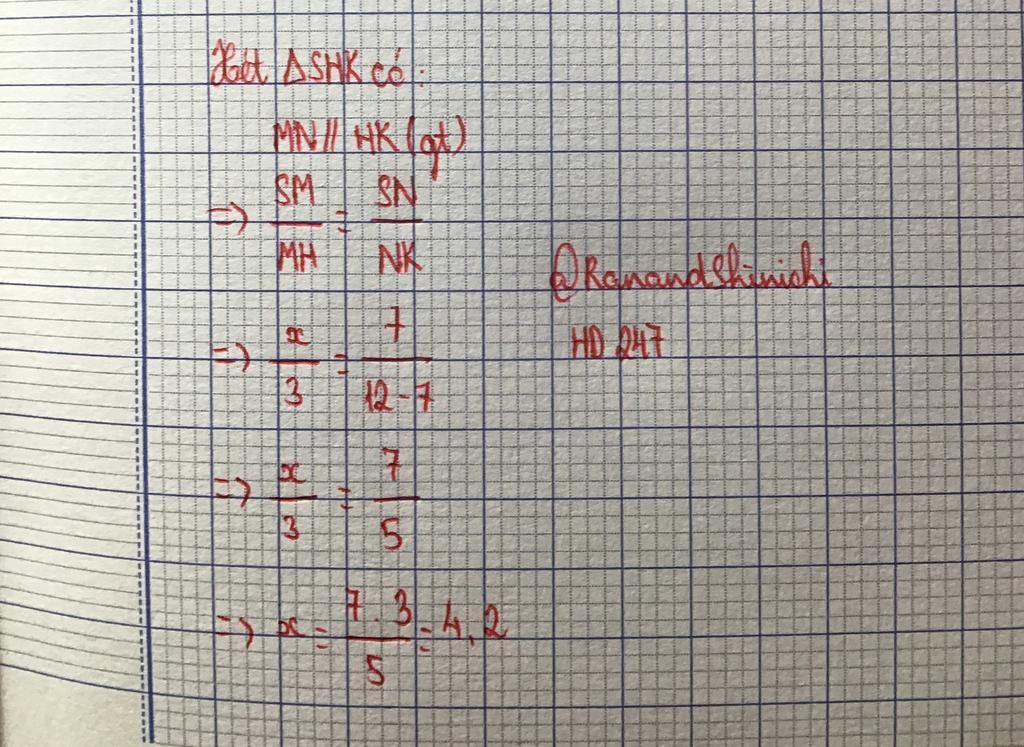 Xét ΔSHK có:
MN // HK (gt)
=> SM/MH = SN/NK
=> x/3 = 7/12-7
=> x/3 = 7/5
=> x = 7.3/5 = 4,2
@RanandShinichi
HD 247